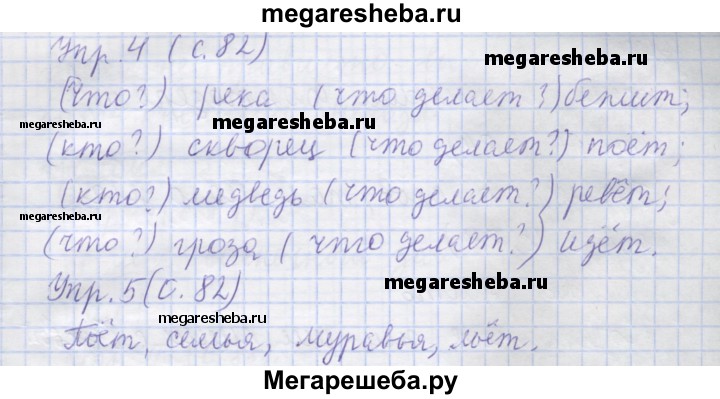 megaresheba.ru
Упр. 4 (с. 82)
megaresheba.ru
(Что?) река (что делает?) бежит;
megaresheba.ru
megaresheba.ru
(кто?) скворец (что делает?) поёт;
(кто?) медведь (что делает?) ревёт;
megaresheba.ru
(что?) гроза (что делает?) идёт.
megaresheba.ru
Упр. 5 (с. 82)
megaresheba.ru
Поёт, семья, муравья, льёт.
Мегарешеба.ру